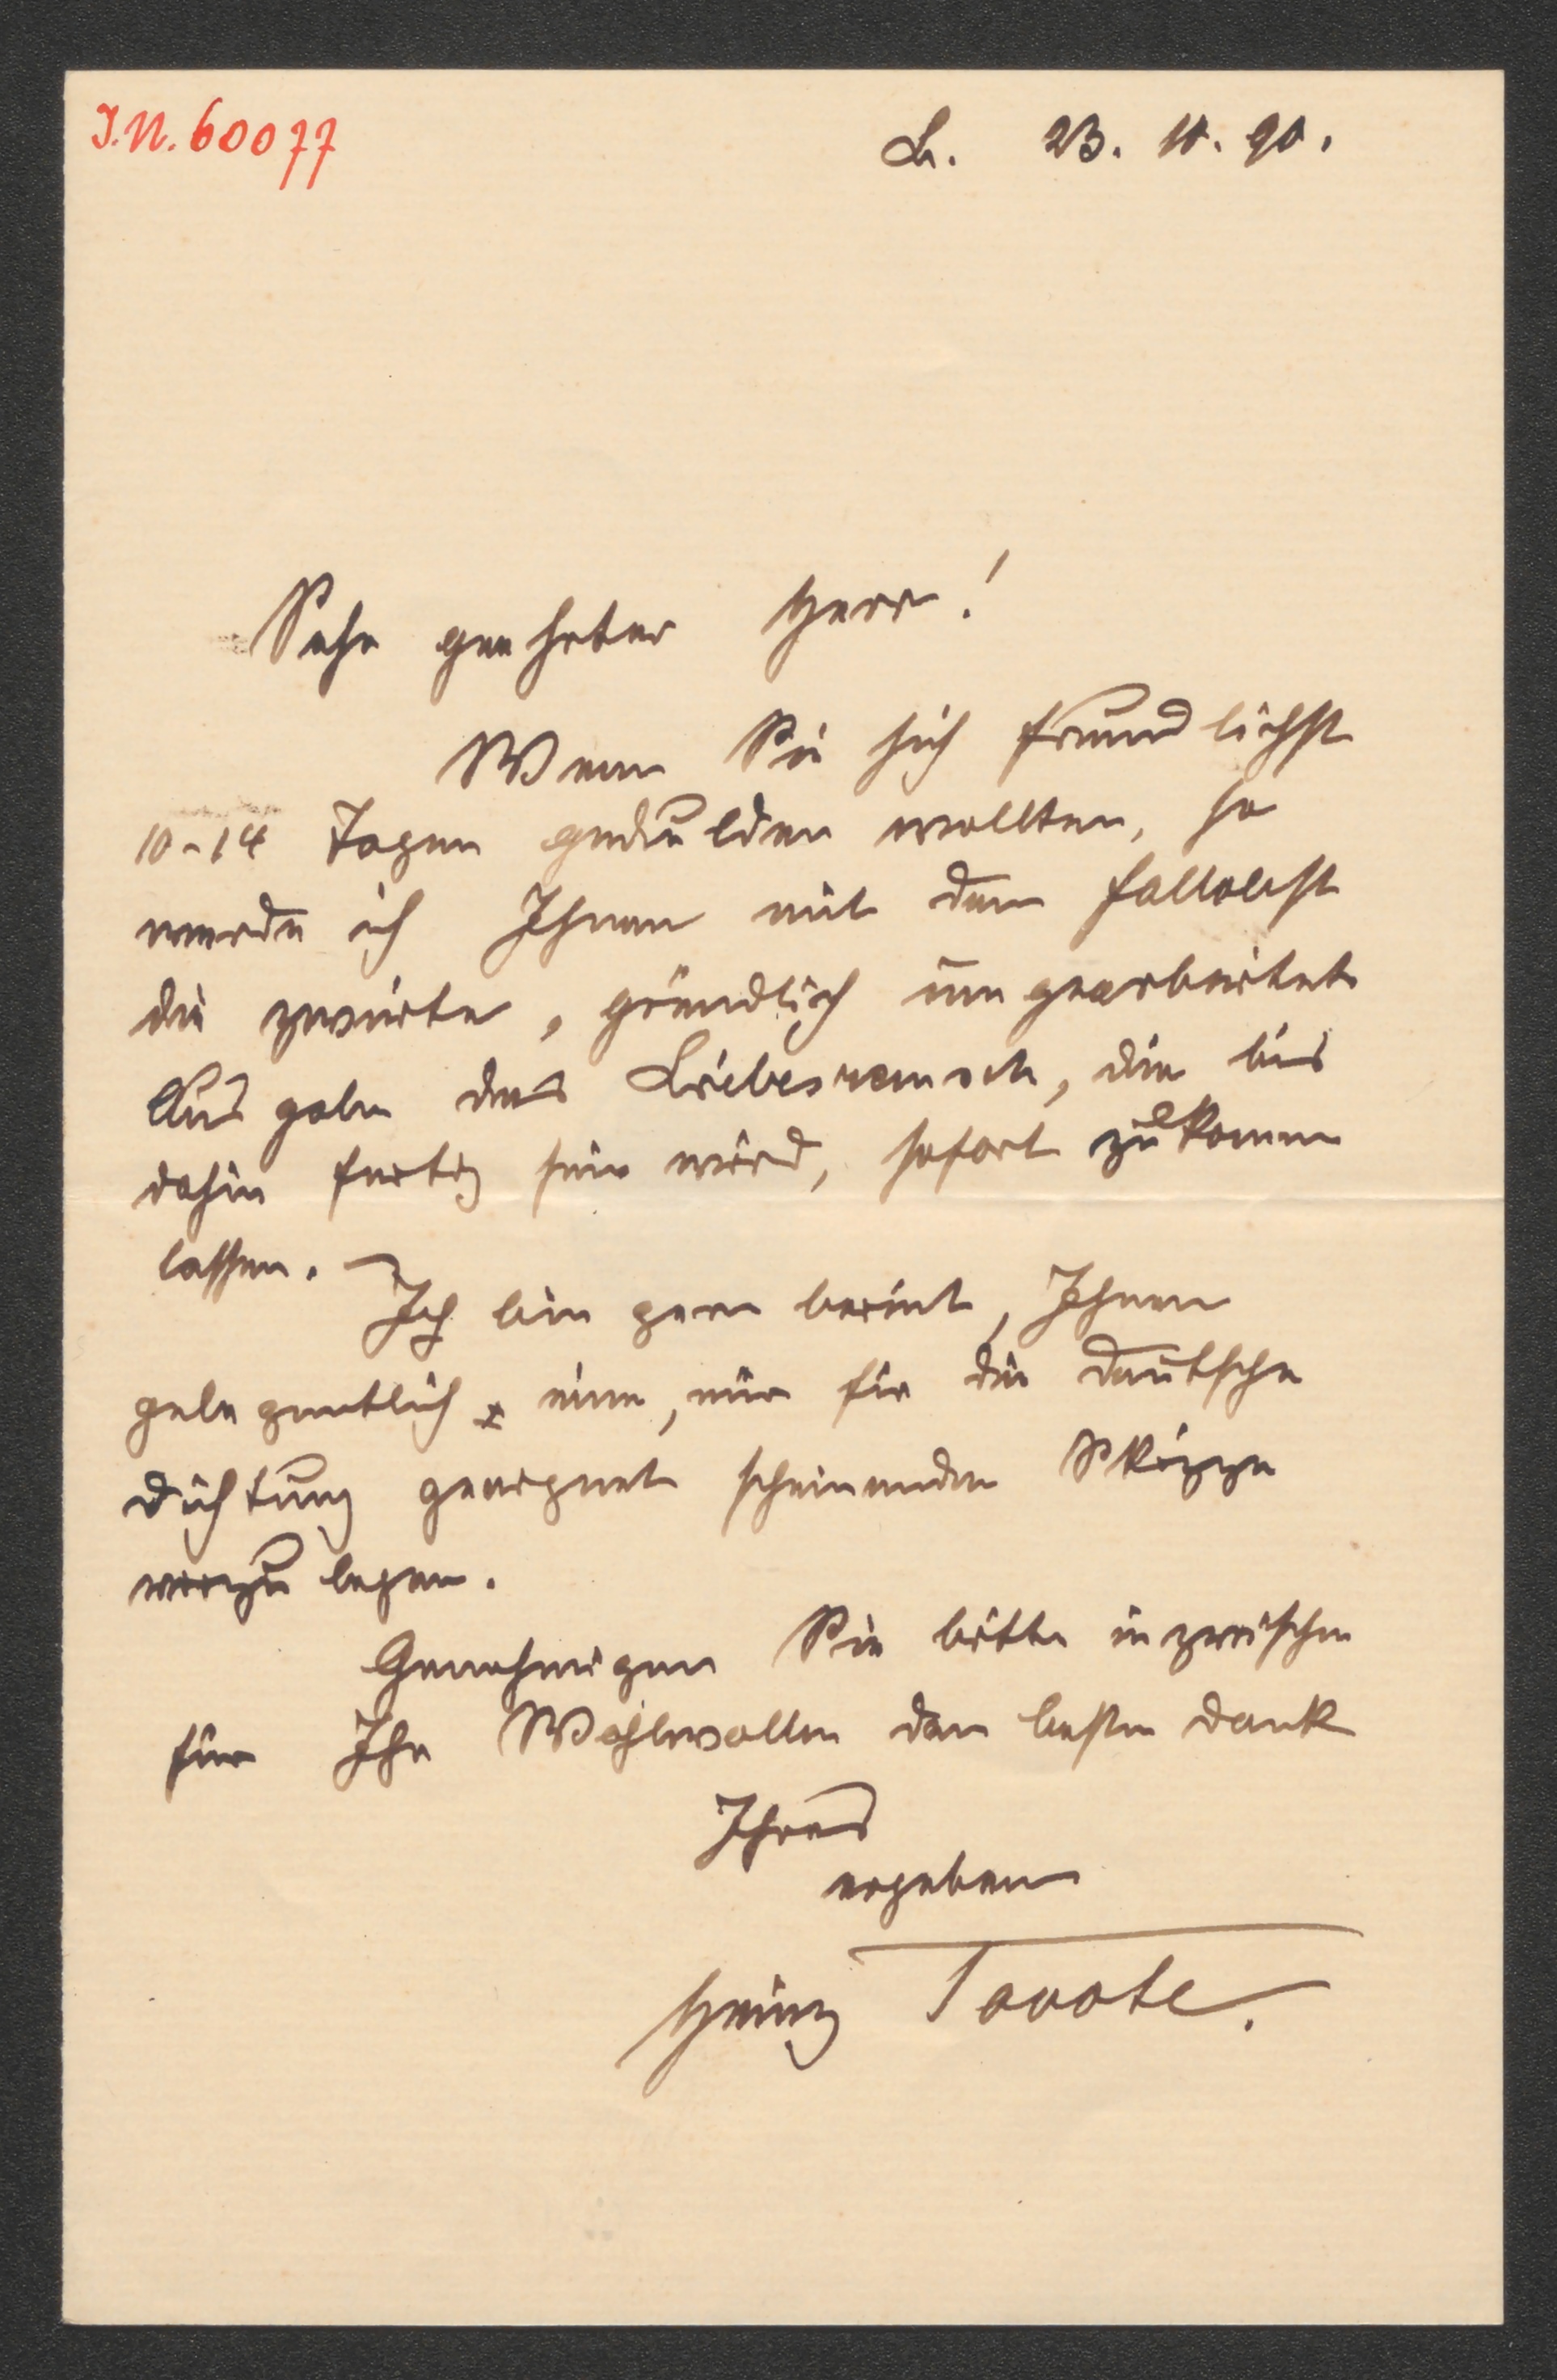 I.N. 60077
B. 23. 11. 90.
Sehr geehrter Herr!
Wenn Sie sich freundlichst
10-14 Tagen gedulden wollten, so
werde ich Ihnen mit dem Fallobst
die zweite, gründlich umgearbeitete
Ausgabe des Liebesrausch, die bis
dahin fertig sein wird, sofort zukommen
lassen. —
Ich bin gern bereit, Ihnen
gelegentlich eine, mir für die Deutsche
Dichtung geeignet scheinende Skizze
vorzulegen.
Genehmigen Sie bitte inzwischen
für Ihr Wohlwollen den besten Dank
Ihres
ergebenen
Heinz Tovote.